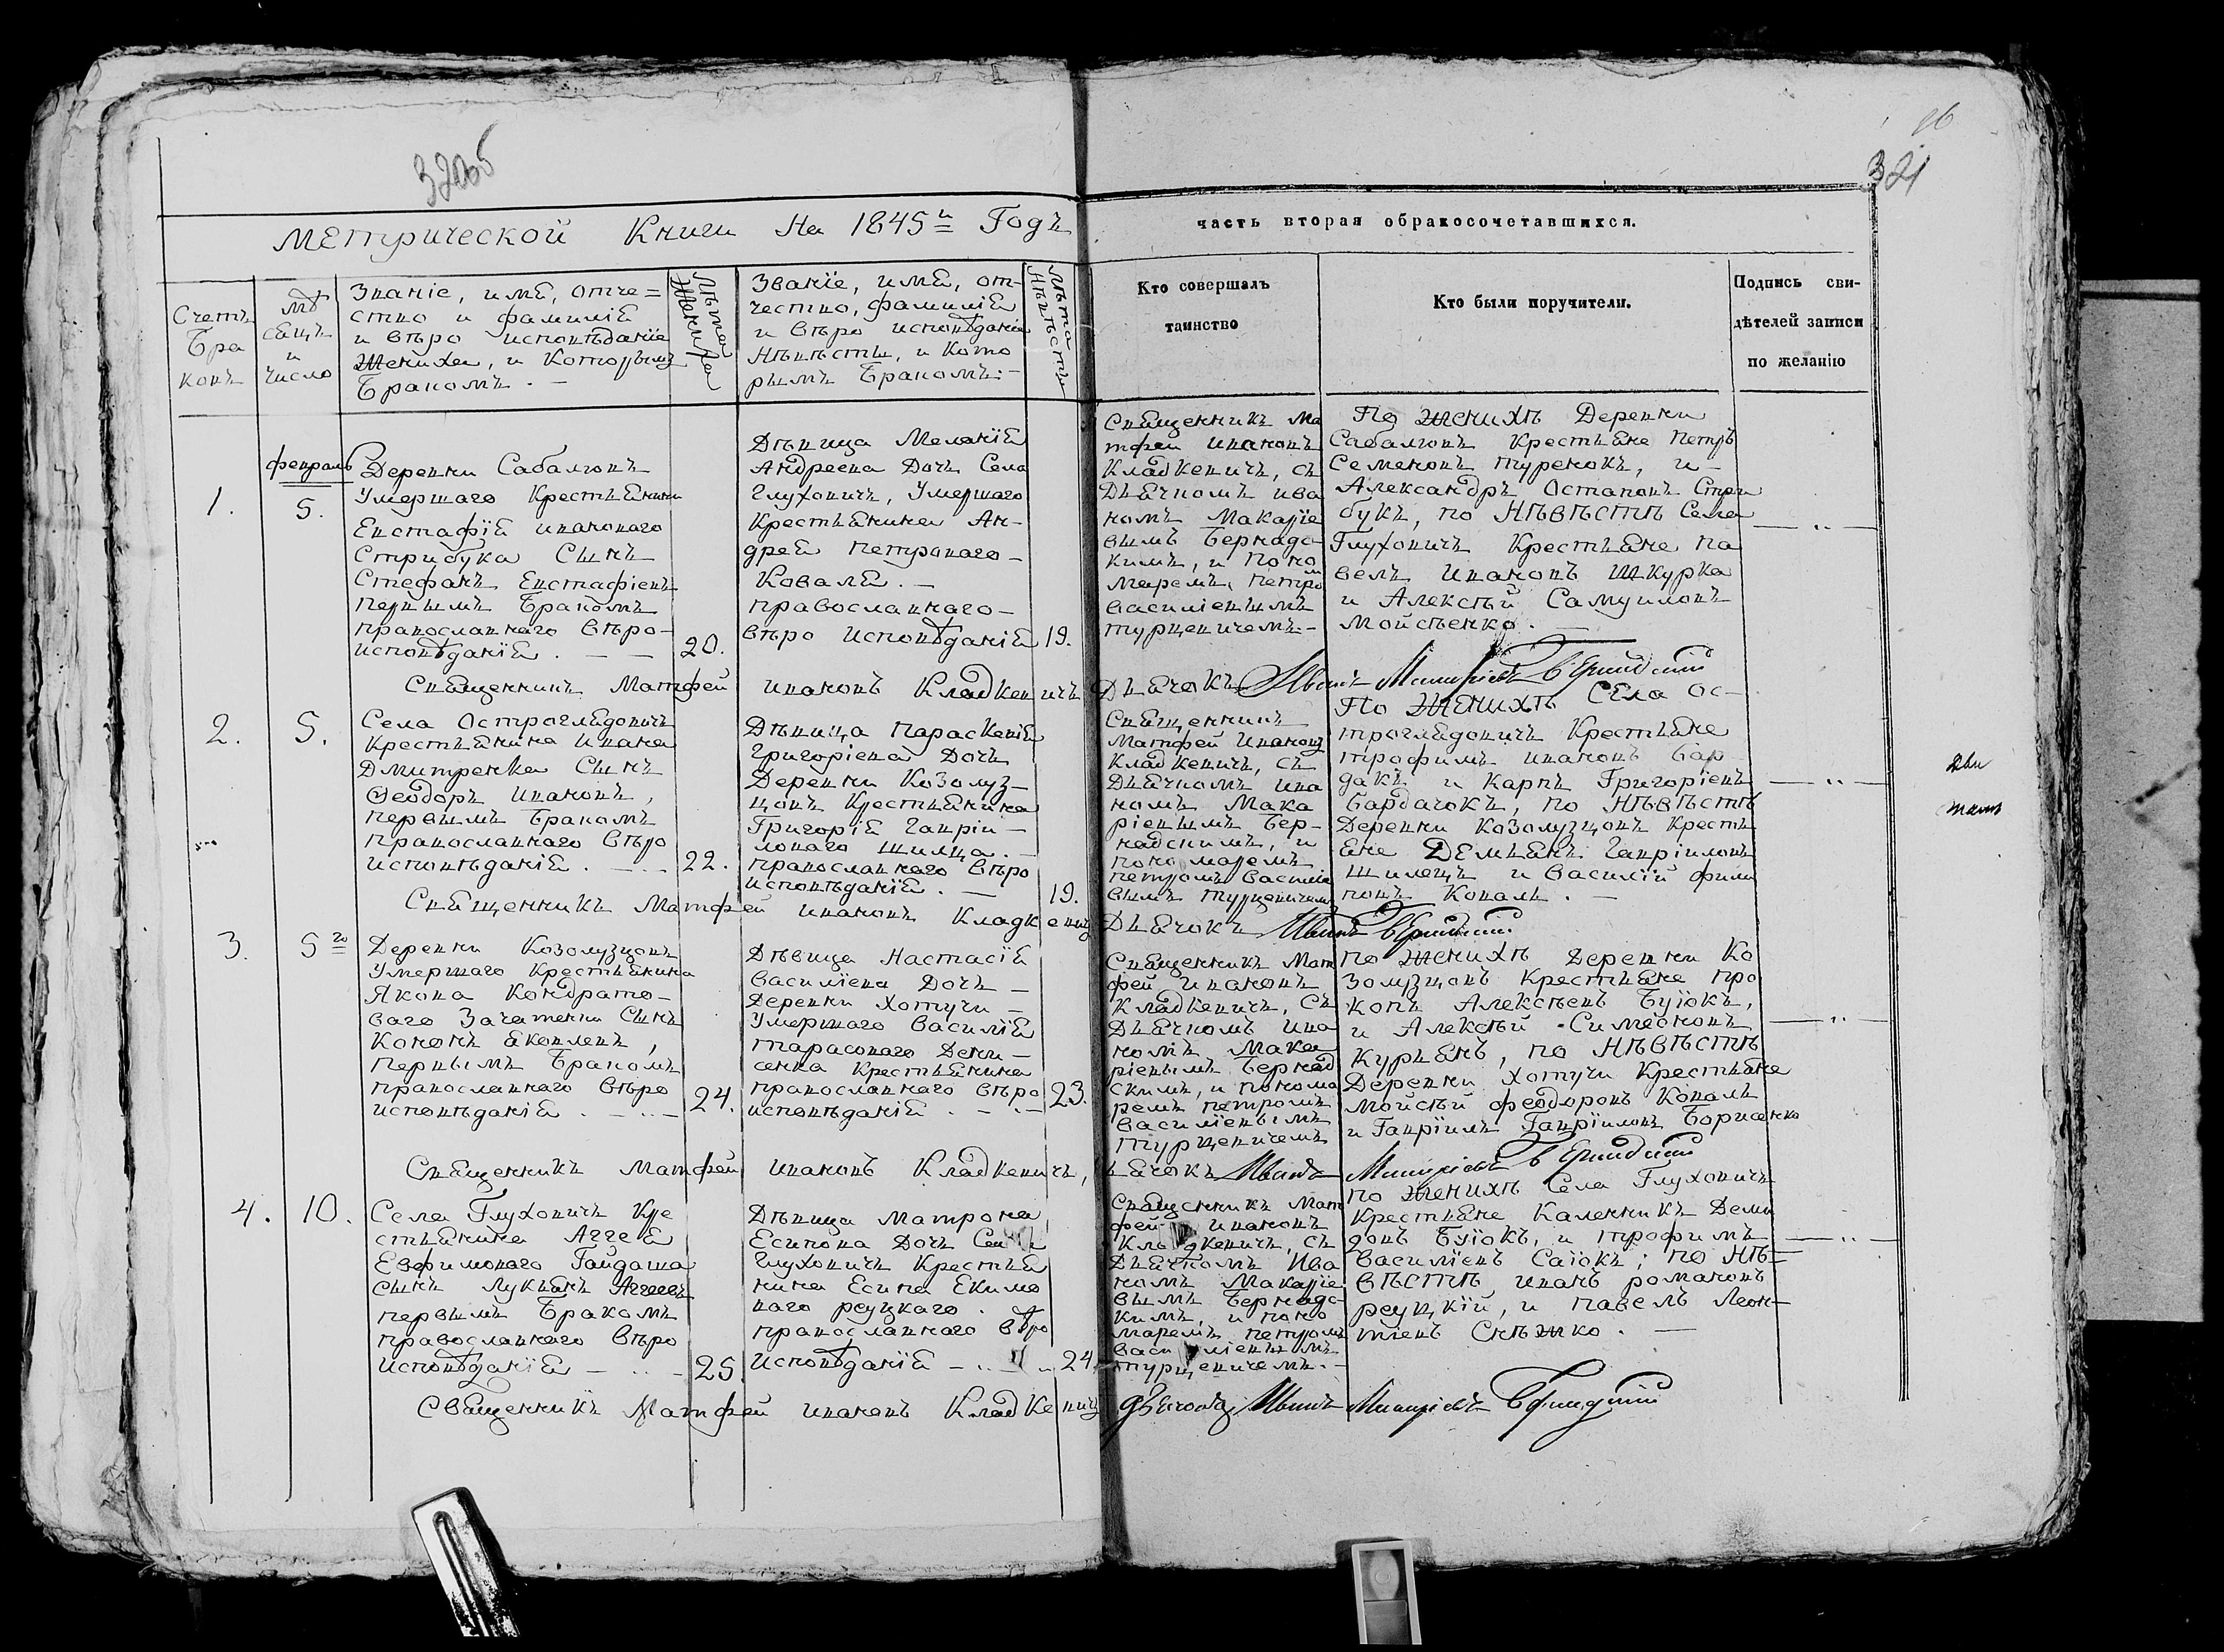 320об
16
321
Метрической Книги На 1845й Годъ
часть вторая обракосочетавшихся.
Счетъ
Бра
ковъ
мѣ
сяцъ
и
число
Званіе, имя, отче=
ство и фамилія
и вѣро исповѣданіе
Жениха, и Которымъ
Бракомъ. —
Лѣта
Жениха
Званіе, имя, от-
чество, фамилія
и вѣро исповѣданія
Нѣвѣсты, и Кото
рымъ Бракомъ. —
Лѣта
Нѣвѣсты
Кто совершалъ
таинство
Кто были поручители.
Подпись сви-
дѣтелей записи
по желанію
1.
февраль
5.
Деревни Сабаловъ
Умершаго Крестьянина
Евстафія ивановаго
Стрибука Сынъ
Стефанъ Евстафіевъ
первымъ Бракомъ
православнаго вѣро-
исповѣданія. — —
20.
Дѣвица Меланія
Андреева Дочь Села
Глуховичъ, Умершаго
Крестьянина Ан-
дрея петроваго-
Коваля. —
православнаго-
вѣро исповѣданія
19.
Священникъ Ма
тфей ивановъ
Кладкевичъ, съ
Дьячкомъ ива
номъ Макаріе
вымъ Бернадс-
кимъ, и поно
маремъ петром
василіевымъ
турцевичемъ-
По женихѣ Деревни
Сабаловъ Крестьяне петръ
Семеновъ туренокъ, и-
Александръ Остаповъ Стри
букъ, по Нѣвѣстѣ Села
Глуховичъ Крестьяне па
велъ ивановъ Шкурка
и Алексѣй Самуиловъ
мойсѣенко. —
Священникъ Матфей ивановъ Кладкевичъ Дьячокъ Иванъ Макаріевъ Бернадскій
2.
5.
Села Остроглядовичъ
Крестьянина ивана
Дмитренка Сынъ
Ѳеодоръ ивановъ,
первымъ бракомъ
православнаго вѣро
исповѣданія. —
22.
Дѣвица Параскевія
Григоріева Дочь
Деревни Козолуз-
цовъ Крестьянина
Григорія Гавріи-
ловаго шилца. —
православнаго вѣро
исповѣданія. —
19.
Священникъ
Матфей Ивановъ
Кладкевичъ, съ
Дьячкомъ ива
номъ Мака
ріевымъ Бер-
надскимъ, и
поно маремъ
петромъ василіе
вымъ турцевичемъ
По женихѣ Села Ос-
троглядовичъ Крестьяне
трофимъ ивановъ Бар
дакъ и Карпъ Григоріевъ
Бардачокъ, по Нѣвѣстѣ
Деревни Козолузцовъ Кресть
яне Демьянъ Гавріиловъ
шилецъ и василій фили
повъ Коваль. —
Священникъ Матфей ивановъ Кладкевичъ Дьячокъ Иванъ Бернадскій
3.
5го
Деревни Козолузцовъ
Умершаго Крестьянина
Якова Кондрато-
ваго Зачатенки Сынъ
Кононъ яковлевъ,
первымъ Бракомъ
православнаго вѣро
исповѣданія. —
24.
Дѣвица Настасія
василіева Дочь —
Деревни Хотучи —
Умершаго василія
тарасоваго Дени-
сенка Крестьянина
православнаго вѣро
исповѣданія. —
23.
Священникъ Мат
фей ивановъ
Кладкевичъ, Съ
Дьячкомъ ива
номъ Мака
ріевымъ Бернад
скимъ, и понома
ремъ петромъ
василіевымъ
турцевичемъ
по женихѣ Деревни Ко
золузцовъ Крестьяне про
копъ Алексѣевъ Буіокъ,
и Алексѣй Симеоновъ
Курьянъ, по Нѣвѣстѣ
Деревни Хотучи Крестьяне
мойсѣй феодоровъ Коваль
и Гавріилъ Гавріиловъ Борисенко
Священникъ Матфей ивановъ Кладкевичъ, Дьячокъ Иванъ Макаріевъ Бернадскій
4.
10.
Села Глуховичъ Кре
стьянина Аггея
Евфимоваго Гайдаша
сынъ Лукьянъ Аггеевъ
первымъ Бракомъ
православнаго вѣро
исповѣданія —
25
Дѣвица Матрона
Есипова Дочь Села
Глуховичъ Крестья
нина Есипа Екимо
ваго реуцкаго.
православнаго вѣро
исповѣданія —
24.
Священникъ Мат
фей ивановъ
Кладкевичъ, съ
Дьячкомъ Ива
номъ Макаріе
вымъ Бернадс-
кимъ, и поно
маремъ петромъ
василіевымъ
турцевичемъ. —
по женихѣ Села Глуховичъ
Крестьяне Каленникъ Деми
довъ Буіокъ, и трофимъ
василіевъ Саіокъ; по Нѣ-
вѣстѣ иванъ романовъ
реуцкій, и павелъ Леон-
тіевъ Снѣжко. —
Священникъ Матфей ивановъ Кладкевичъ Дьячокъ Иванъ Макаріевъ Бернадскій